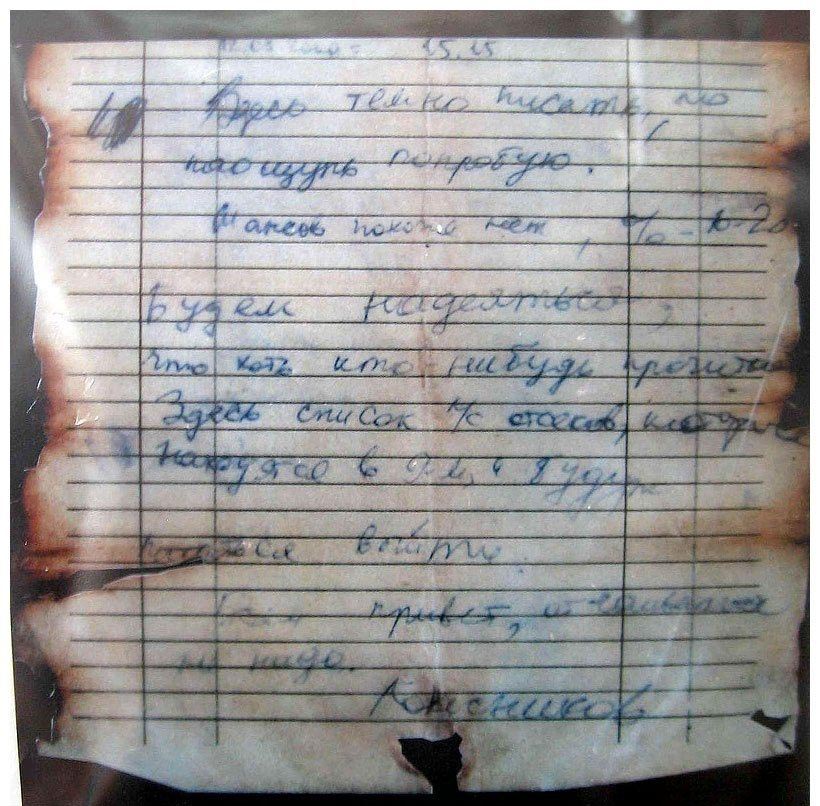 12.08.2000 г 15.15
Здесь темно писать, но
наощупь попробую.
Шансов похоже нет, % - 10-20
Будем надеяться,
что хоть кто-нибудь прочитает
Здесь список л/с отсеков, которые
находятся в 9-м и будут
пытаться выйти.
Всем привет, отчаиваться
не надо.
Колесников